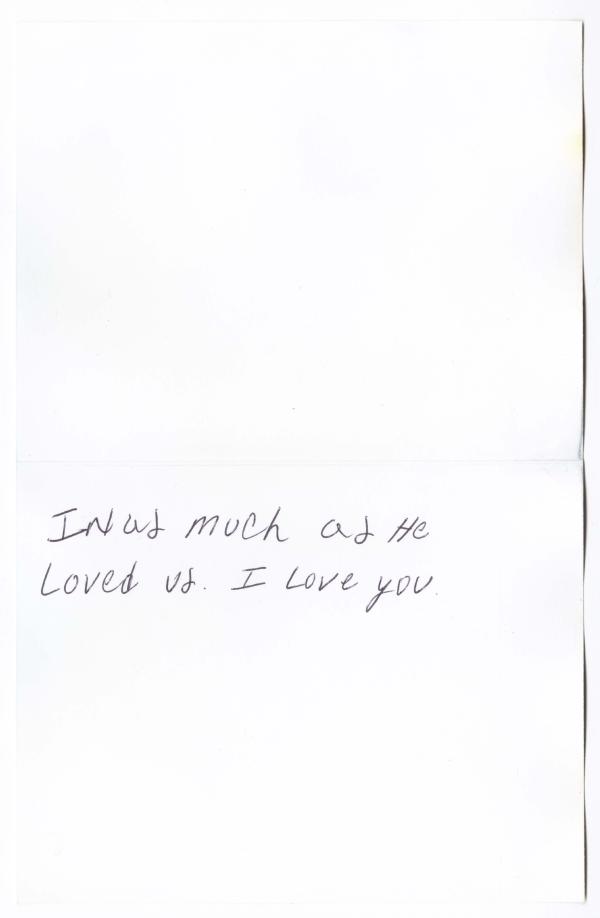 INas much as He
Loved us. I Love you.